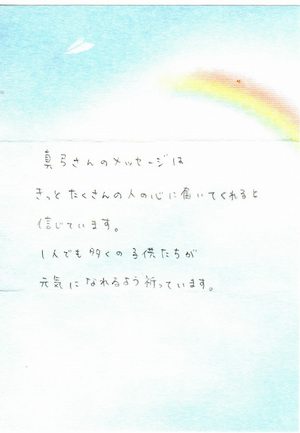 真弓さんのメッセージは
きっとたくさんの人の心に届いてくれると
信じています。
1人でも多くの子供たちが
元気になれるよう祈っています。